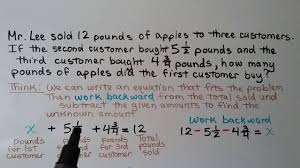 Mr. Lee sold 12 pounds of apples to three customers.
If the second customer bought 5 1/2 pounds and the
third customer bought 4 3/4 pounds, how many
pounds of apples did the first customer buy?
Think: We can write an equation that fits the problem
Then work backward from the total sold and
subtract the given amounts to find the
unknown amount
work backward
x + 5 + 4 3/4 = 12
12 - 5 1/2 - 4 3/4 = x
pounds pounds pounds total
for 1st for for 3rd pounds
customer customer sold